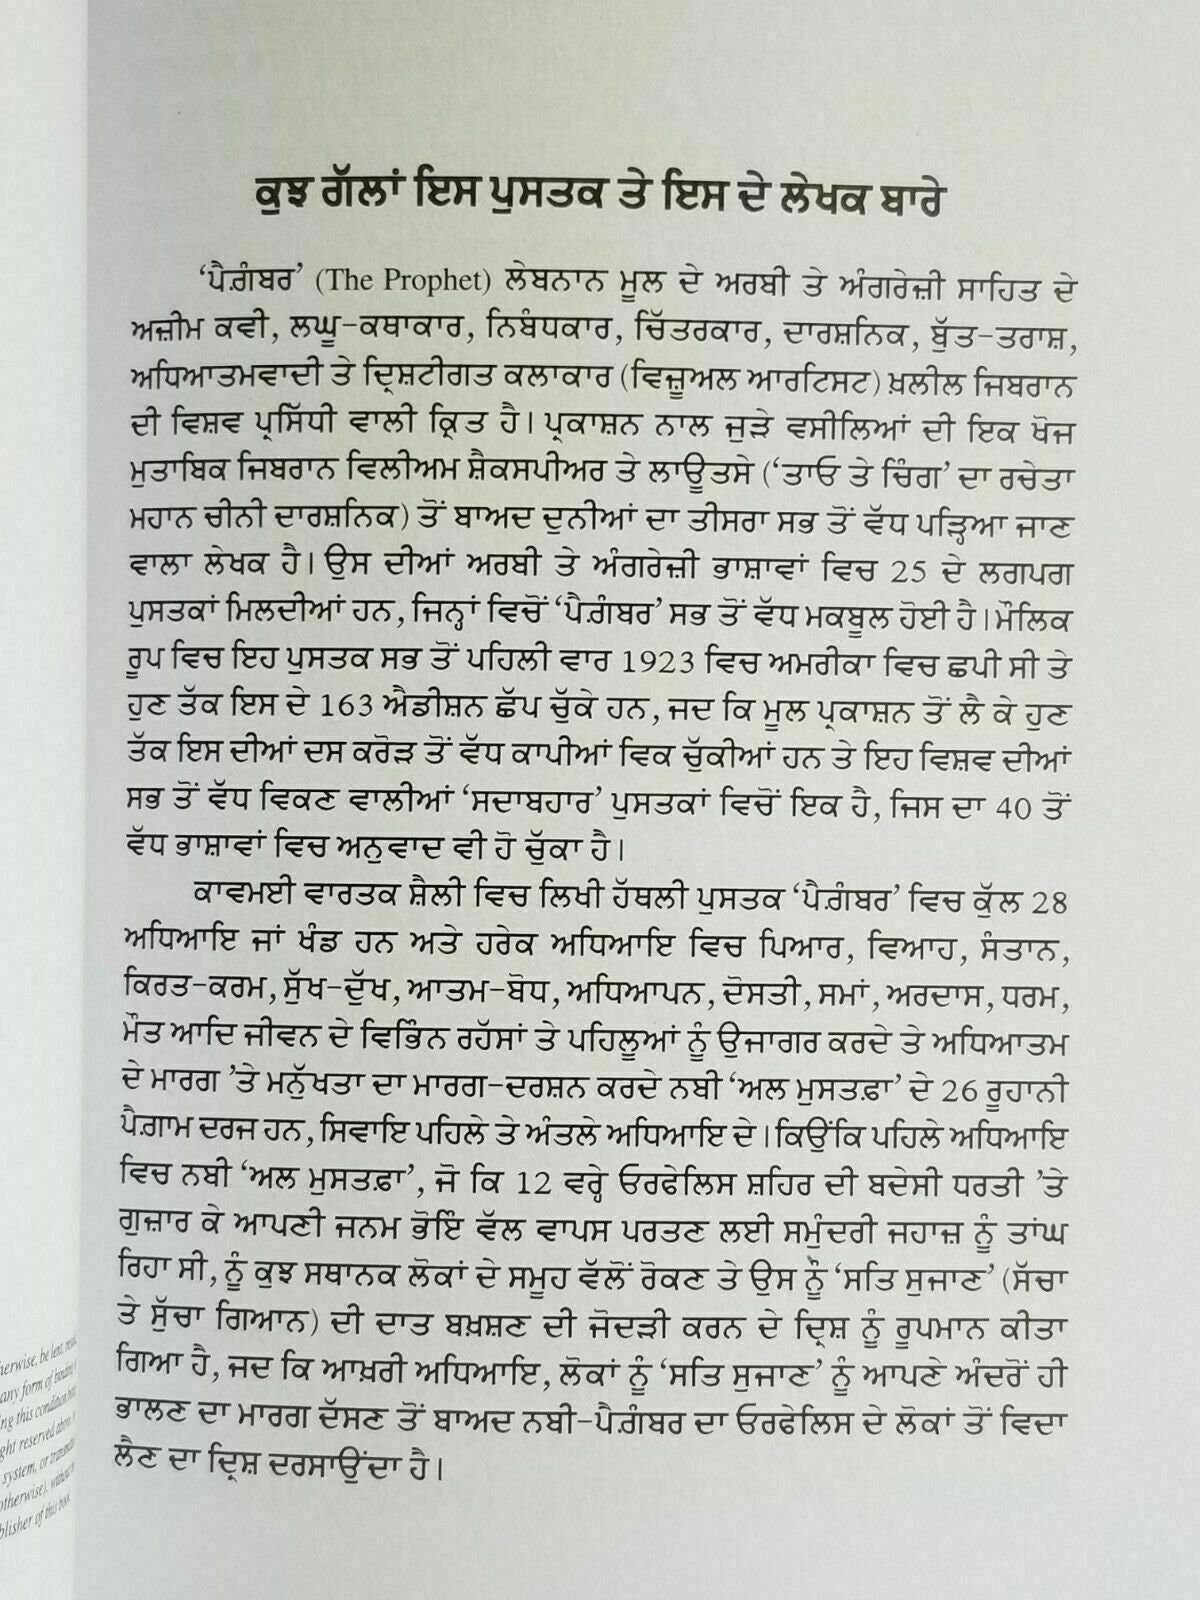 ਕੁਝ ਗੱਲਾਂ ਇਸ ਪੁਸਤਕ ਤੇ ਇਸ ਦੇ ਲੇਖਕ ਬਾਰੇ
‘ਪੈਗ਼ੰਬਰ’ (The Prophet) ਲੇਬਨਾਨ ਮੂਲ ਦੇ ਅਰਬੀ ਤੇ ਅੰਗਰੇਜ਼ੀ ਸਾਹਿਤ ਦੇ
ਅਜ਼ੀਮ ਕਵੀ, ਲਘੂ-ਕਥਾਕਾਰ, ਨਿਬੰਧਕਾਰ, ਚਿੱਤਰਕਾਰ, ਦਾਰਸ਼ਨਿਕ, ਬੁੱਤ-ਤਰਾਸ਼,
ਅਧਿਆਤਮਵਾਦੀ ਤੇ ਦ੍ਰਿਸ਼ਟੀਗਤ ਕਲਾਕਾਰ (ਵਿਜ਼ੂਅਲ ਆਰਟਿਸਟ) ਖ਼ਲੀਲ ਜਿਬਰਾਨ
ਦੀ ਵਿਸ਼ਵ ਪ੍ਰਸਿੱਧੀ ਵਾਲੀ ਕ੍ਰਿਤ ਹੈ। ਪ੍ਰਕਾਸ਼ਨ ਨਾਲ ਜੁੜੇ ਵਸੀਲਿਆਂ ਦੀ ਇਕ ਖੋਜ
ਮੁਤਾਬਿਕ ਜਿਬਰਾਨ ਵਿਲੀਅਮ ਸ਼ੈਕਸਪੀਅਰ ਤੇ ਲਾਊਤਸੇ (‘ਤਾਓ ਤੇ ਚਿੰਗ’ ਦਾ ਰਚੇਤਾ
ਮਹਾਨ ਚੀਨੀ ਦਾਰਸ਼ਨਿਕ) ਤੋਂ ਬਾਅਦ ਦੁਨੀਆਂ ਦਾ ਤੀਸਰਾ ਸਭ ਤੋਂ ਵੱਧ ਪੜ੍ਹਿਆ ਜਾਣ
ਵਾਲਾ ਲੇਖਕ ਹੈ। ਉਸ ਦੀਆਂ ਅਰਬੀ ਤੇ ਅੰਗਰੇਜ਼ੀ ਭਾਸ਼ਾਵਾਂ ਵਿਚ 25 ਦੇ ਲਗਪਗ
ਪੁਸਤਕਾਂ ਮਿਲਦੀਆਂ ਹਨ, ਜਿਨ੍ਹਾਂ ਵਿਚੋਂ ‘ਪੈਗ਼ੰਬਰ’ ਸਭ ਤੋਂ ਵੱਧ ਮਕਬੂਲ ਹੋਈ ਹੈ। ਮੌਲਿਕ
ਰੂਪ ਵਿਚ ਇਹ ਪੁਸਤਕ ਸਭ ਤੋਂ ਪਹਿਲੀ ਵਾਰ 1923 ਵਿਚ ਅਮਰੀਕਾ ਵਿਚ ਛਪੀ ਸੀ ਤੇ
ਹੁਣ ਤੱਕ ਇਸ ਦੇ 163 ਐਡੀਸ਼ਨ ਛੱਪ ਚੁੱਕੇ ਹਨ, ਜਦ ਕਿ ਮੂਲ ਪ੍ਰਕਾਸ਼ਨ ਤੋਂ ਲੈ ਕੇ ਹੁਣ
ਤੱਕ ਇਸ ਦੀਆਂ ਦਸ ਕਰੋੜ ਤੋਂ ਵੱਧ ਕਾਪੀਆਂ ਵਿਕ ਚੁੱਕੀਆਂ ਹਨ ਤੇ ਇਹ ਵਿਸ਼ਵ ਦੀਆਂ
ਸਭ ਤੋਂ ਵੱਧ ਵਿਕਣ ਵਾਲੀਆਂ ‘ਸਦਾਬਹਾਰ’ ਪੁਸਤਕਾਂ ਵਿਚੋਂ ਇਕ ਹੈ, ਜਿਸ ਦਾ 40 ਤੋਂ
ਵੱਧ ਭਾਸ਼ਾਵਾਂ ਵਿਚ ਅਨੁਵਾਦ ਵੀ ਹੋ ਚੁੱਕਾ ਹੈ।
ਕਾਵਮਈ ਵਾਰਤਕ ਸ਼ੈਲੀ ਵਿਚ ਲਿਖੀ ਹੱਥਲੀ ਪੁਸਤਕ ‘ਪੈਗ਼ੰਬਰ’ ਵਿਚ ਕੁੱਲ 28
ਅਧਿਆਇ ਜਾਂ ਖੰਡ ਹਨ ਅਤੇ ਹਰੇਕ ਅਧਿਆਇ ਵਿਚ ਪਿਆਰ, ਵਿਆਹ, ਸੰਤਾਨ,
ਕਿਰਤ-ਕਰਮ, ਸੁੱਖ-ਦੁੱਖ, ਆਤਮ-ਬੋਧ, ਅਧਿਆਪਨ, ਦੋਸਤੀ, ਸਮਾਂ, ਅਰਦਾਸ, ਧਰਮ,
ਮੌਤ ਆਦਿ ਜੀਵਨ ਦੇ ਵਿਭਿੰਨ ਰਹੱਸਾਂ ਤੇ ਪਹਿਲੂਆਂ ਨੂੰ ਉਜਾਗਰ ਕਰਦੇ ਤੇ ਅਧਿਆਤਮ
ਦੇ ਮਾਰਗ ’ਤੇ ਮਨੁੱਖਤਾ ਦਾ ਮਾਰਗ-ਦਰਸ਼ਨ ਕਰਦੇ ਨਬੀ ‘ਅਲ ਮੁਸਤਫ਼ਾ’ ਦੇ 26 ਰੂਹਾਨੀ
ਪੈਗ਼ਾਮ ਦਰਜ ਹਨ, ਸਿਵਾਇ ਪਹਿਲੇ ਤੇ ਅੰਤਲੇ ਅਧਿਆਇ ਦੇ। ਕਿਉਂਕਿ ਪਹਿਲੇ ਅਧਿਆਇ
ਵਿਚ ਨਬੀ ‘ਅਲ ਮੁਸਤਫ਼ਾ’, ਜੋ ਕਿ 12 ਵਰ੍ਹੇ ਓਰਫੇਲਿਸ ਸ਼ਹਿਰ ਦੀ ਬਦੇਸੀ ਧਰਤੀ ’ਤੇ
ਗੁਜ਼ਾਰ ਕੇ ਆਪਣੀ ਜਨਮ ਭੋਇੰ ਵੱਲ ਵਾਪਸ ਪਰਤਣ ਲਈ ਸਮੁੰਦਰੀ ਜਹਾਜ਼ ਨੂੰ ਤਾਂਘ
ਰਿਹਾ ਸੀ, ਨੂੰ ਕੁਝ ਸਥਾਨਕ ਲੋਕਾਂ ਦੇ ਸਮੂਹ ਵੱਲੋਂ ਰੋਕਣ ਤੇ ਉਸ ਨੂੰ ‘ਸਤਿ ਸੁਜਾਣ’ (ਸੱਚਾ
ਤੇ ਸੁੱਚਾ ਗਿਆਨ) ਦੀ ਦਾਤ ਬਖ਼ਸ਼ਣ ਦੀ ਜੋਦੜੀ ਕਰਨ ਦੇ ਦ੍ਰਿਸ਼ ਨੂੰ ਰੂਪਮਾਨ ਕੀਤਾ
ਗਿਆ ਹੈ, ਜਦ ਕਿ ਆਖ਼ਰੀ ਅਧਿਆਇ, ਲੋਕਾਂ ਨੂੰ ‘ਸਤਿ ਸੁਜਾਣ’ ਨੂੰ ਆਪਣੇ ਅੰਦਰੋਂ ਹੀ
ਭਾਲਣ ਦਾ ਮਾਰਗ ਦੱਸਣ ਤੋਂ ਬਾਅਦ ਨਬੀ-ਪੈਗ਼ੰਬਰ ਦਾ ਓਰਫੇਲਿਸ ਦੇ ਲੋਕਾਂ ਤੋਂ ਵਿਦਾ
ਲੈਣ ਦਾ ਦ੍ਰਿਸ਼ ਦਰਸਾਉਂਦਾ ਹੈ।
herwise, be lent,
any form of binding
ing this condition
ght reserved above,
system, or
otherwise), without
blisher of this book